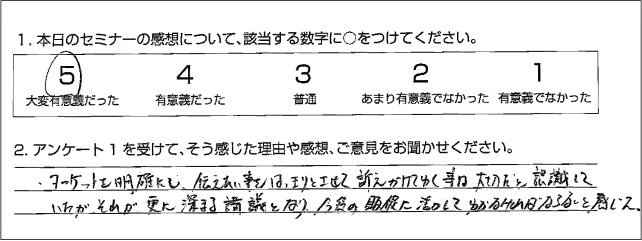 1. 本日のセミナーの感想について、該当する数字に○をつけてください。
5 4 3 2 1
大変有意義だった 有意義だった 普通 あまり有意義でなかった 有意義でなかった
2. アンケート1を受けて、そう感じた理由や感想、ご意見をお聞かせください。
・ターゲットを明確にし、伝えたい事をはっきりとさせて訴えかけてゆく事は大切だと認識して
いたがそれが更に深まる講義となり、今後の販促に活かして ければならないと感じた。